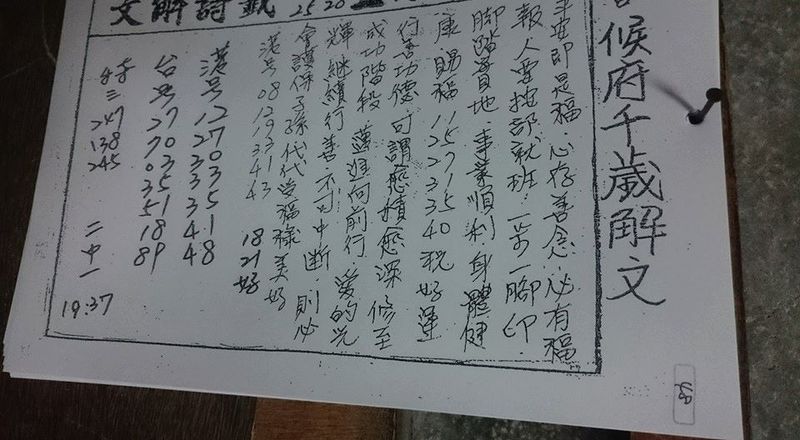 候府千歲解文
文解詩籤
平安即是福 心存善念 必有福
報人要按部就班 一步一腳印
腳踏實地 事業順利身體健
康 賜福 11 22 33 40 祝好運
行善功德 可謂愈積愈深 修至
成功階段 邁進向前行 愛的光
輝 繼續行善 不可中斷 則必
會護保子孫代代造福祿美好
港号 08 12 19 33 41 43 18 21 好
港号 12 27 30 35 41 48
台号 27 70 03 35 51 18 89
三 247 138 245 二中一 19:37